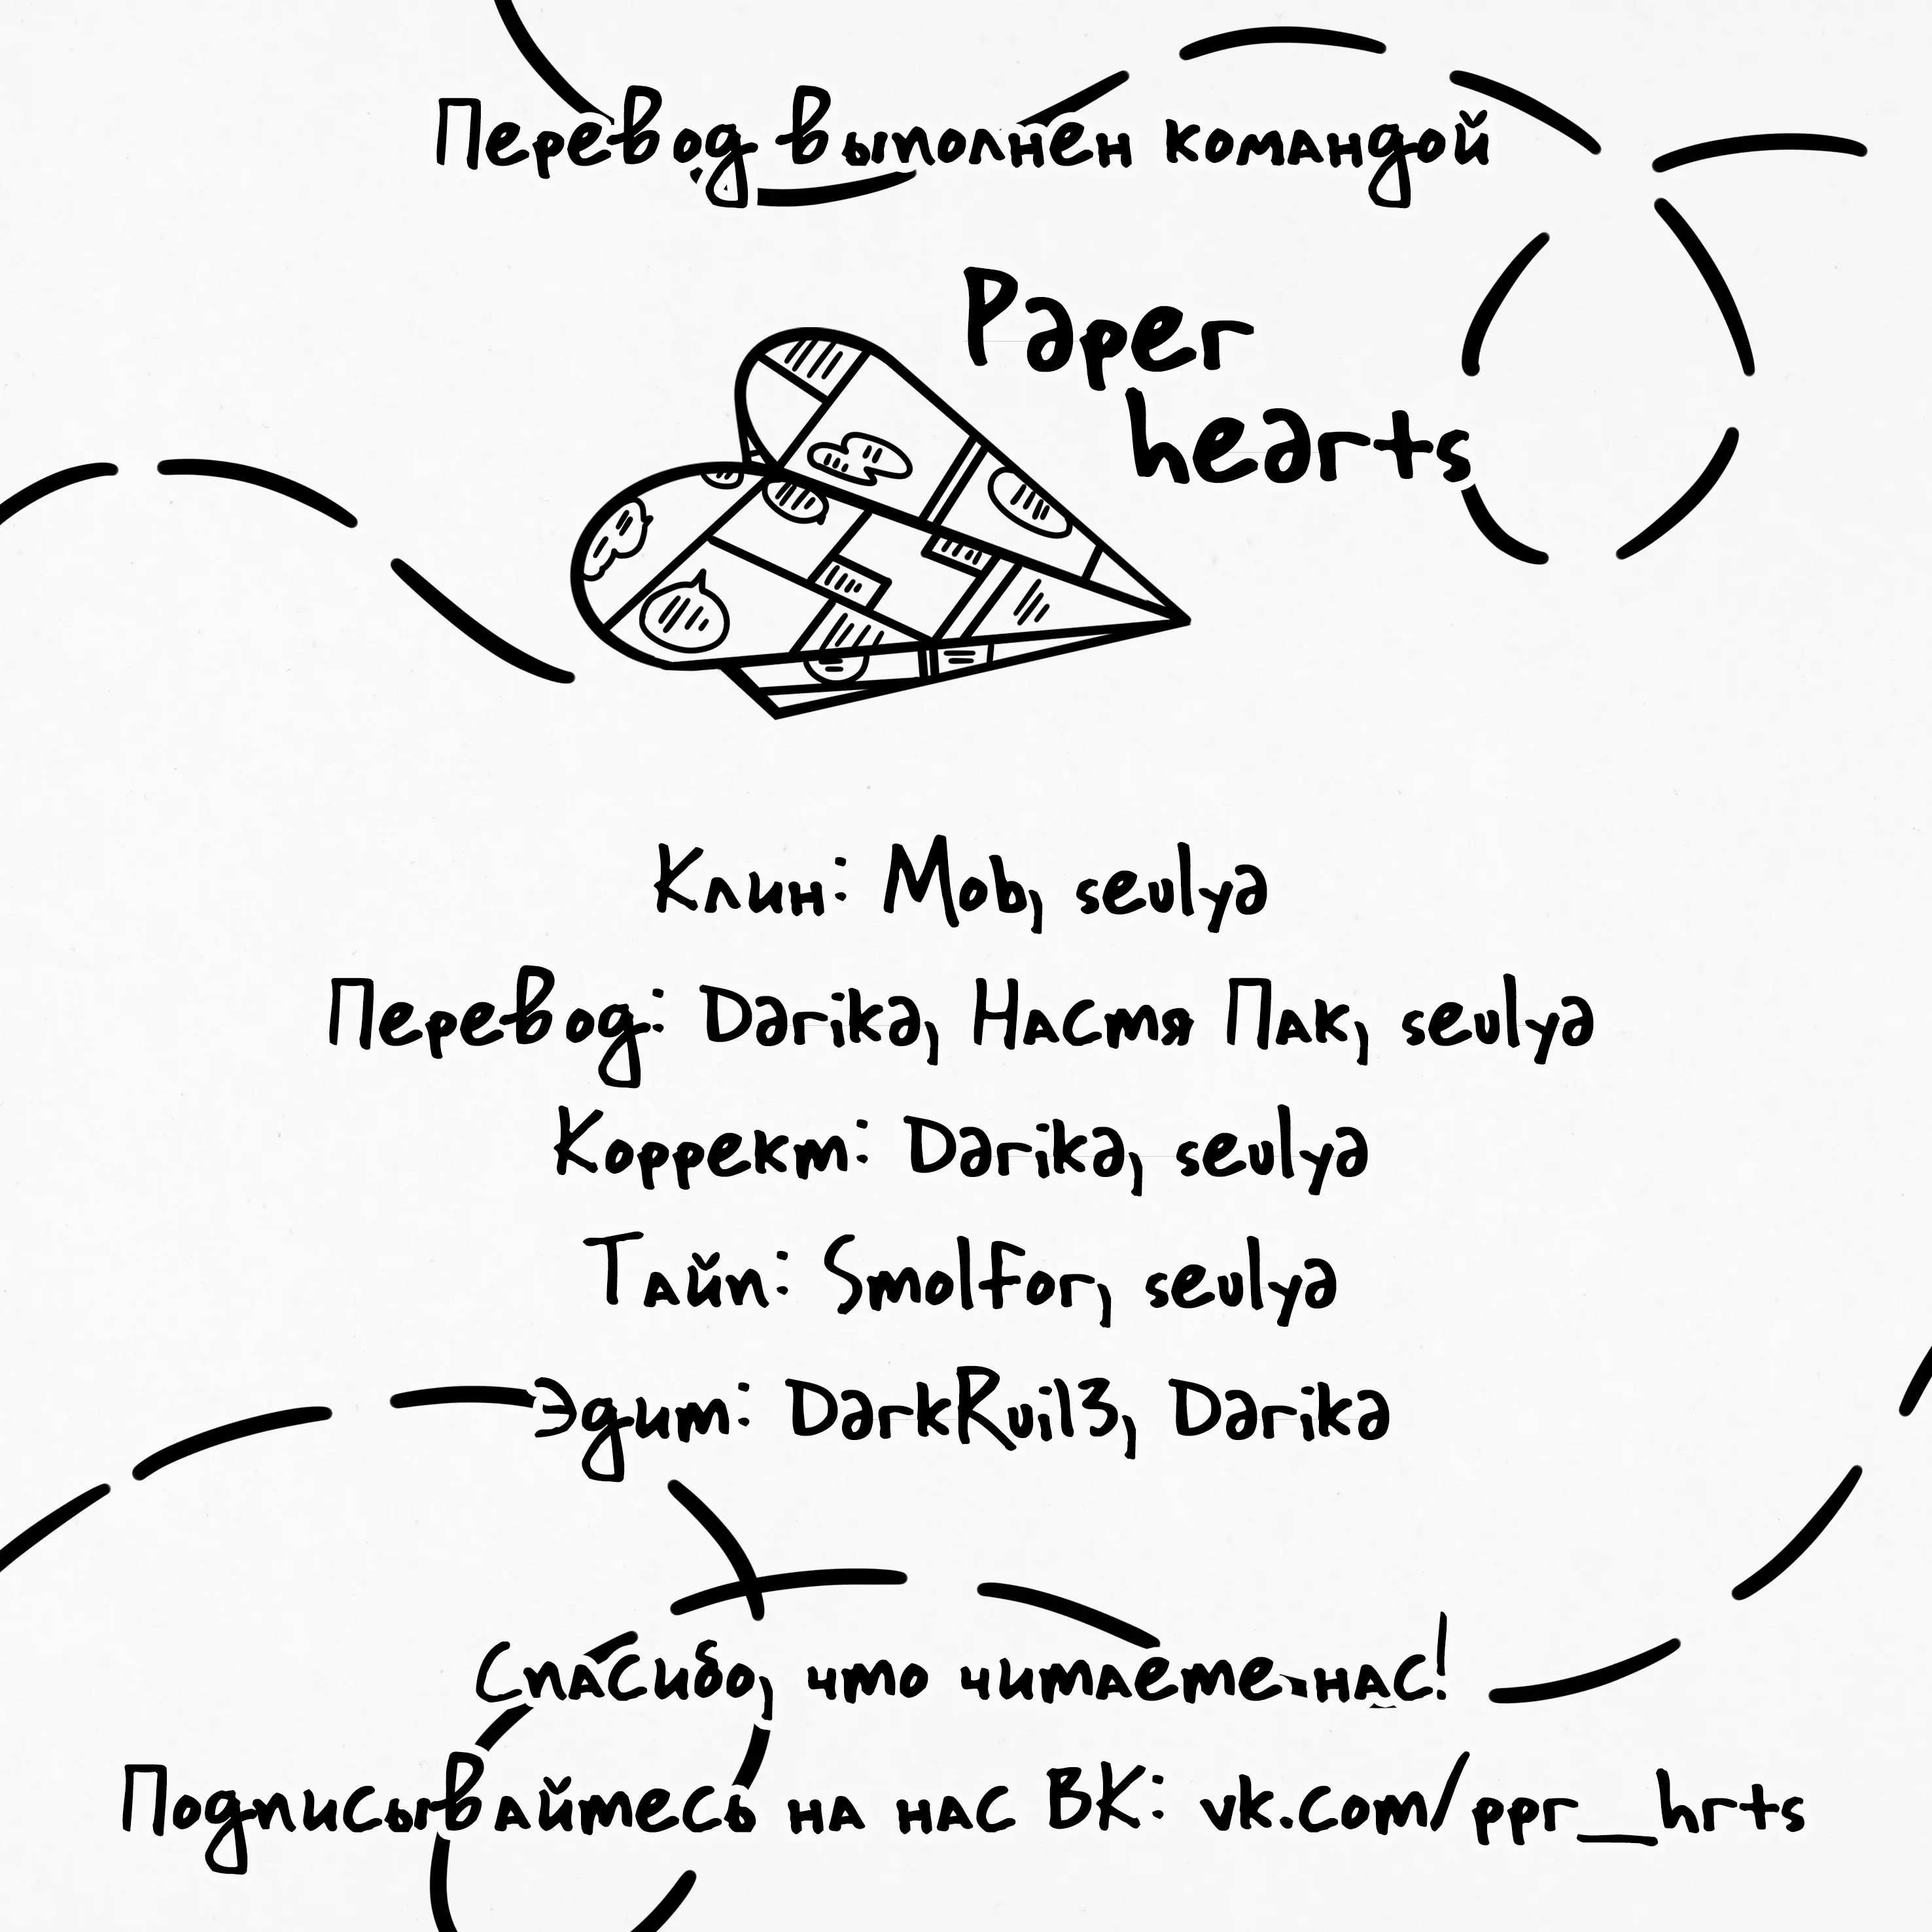 Перевод выполнен командой
Paper
hearts
Клин: Mob, seulya
Перевод: Darika, Настя Пак, seulya
Коррект: Darika, seulya
Тайп: Smolfor, seulya
Эдит: DarkRuil3, Darika
Спасибо, что читаете нас!
Подписывайтесь на нас ВК: vk.com/ppr__hrts